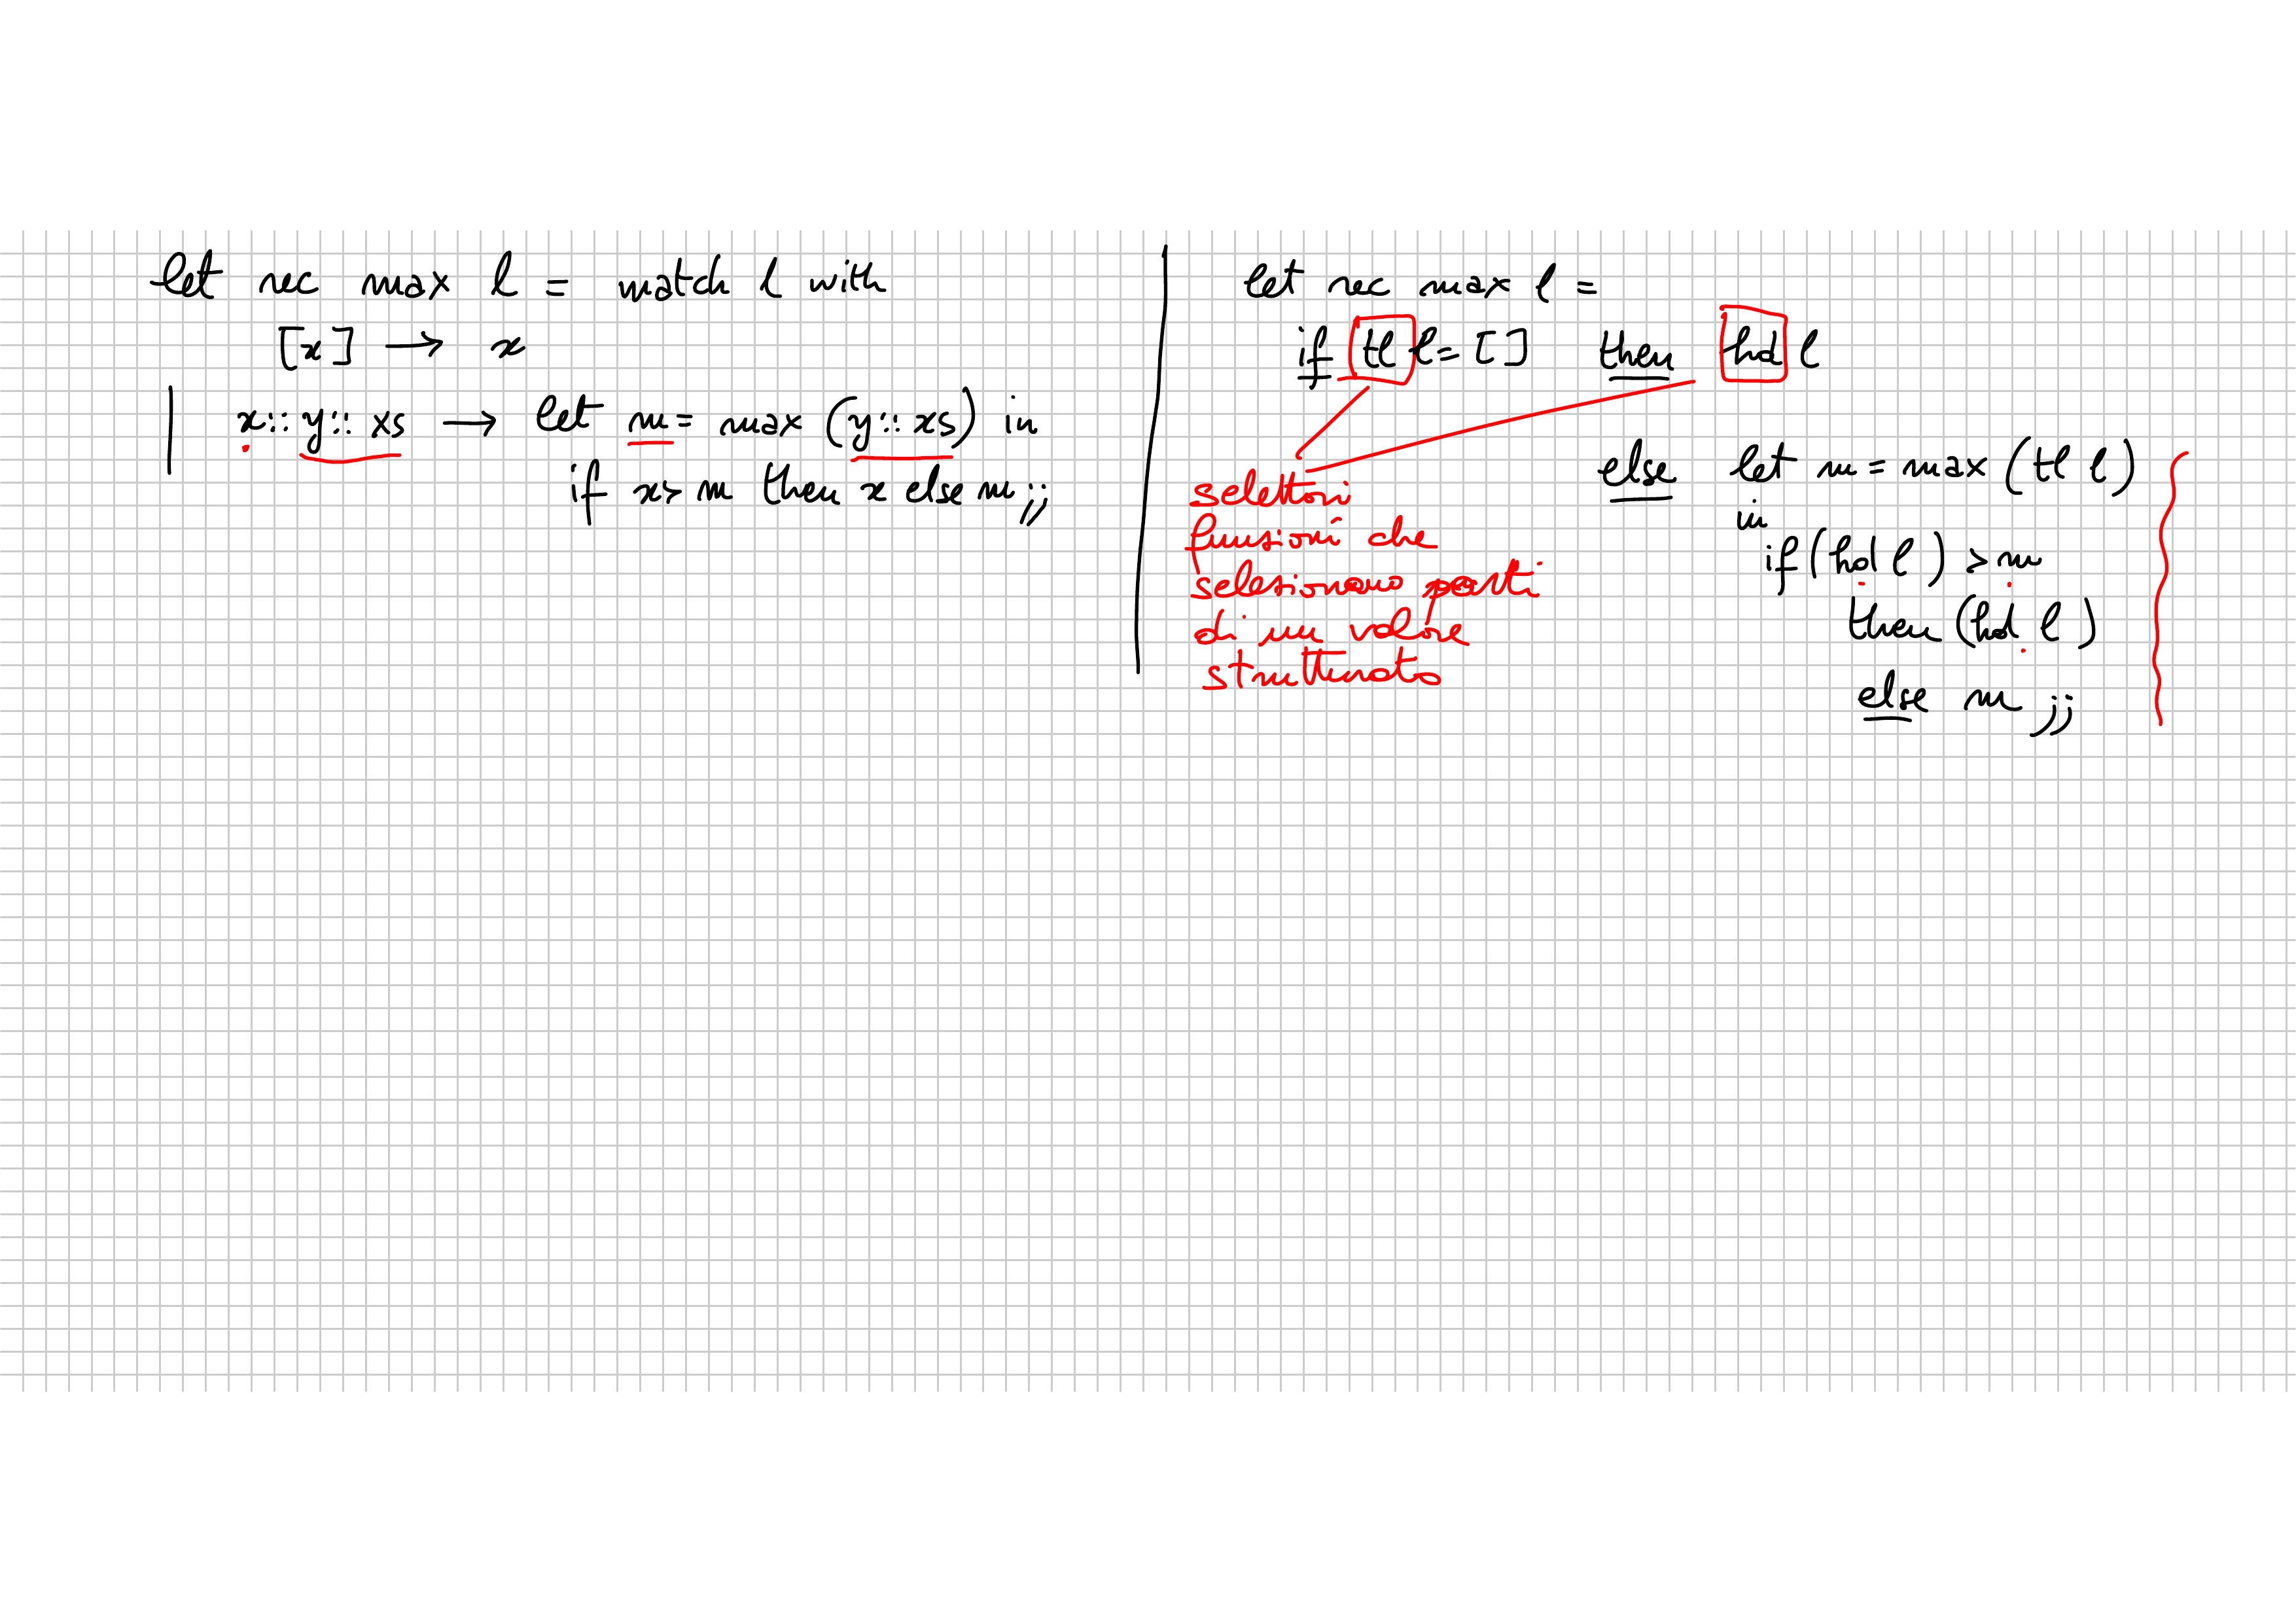 let rec max l = match l with
[x] → x
| x::y::xs → let m = max (y::xs) in
if x > m then x else m;;
let rec max l =
if tl l = [] then hd l
else let m = max (tl l)
in
if (hd l) > m
then (hd l)
else m ;;
selettori
funzioni che
selezionano parti
di un valore
strutturato